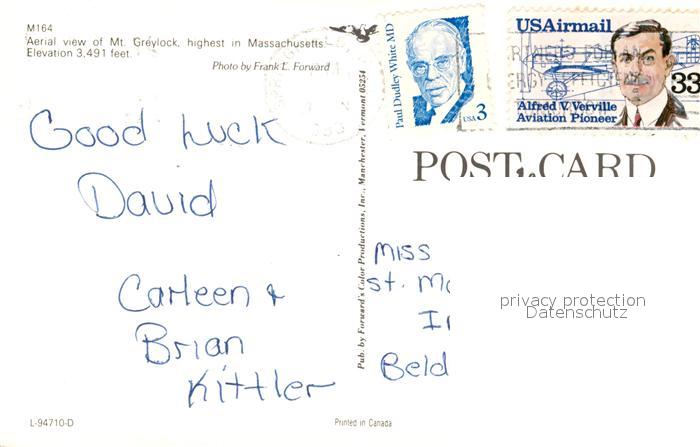 M164
Aerial view of Mt. Greylock, highest in Massachusetts.
Elevation 3,491 feet.
Photo by Frank L. Forward
Good Luck
David
Carleen &
Brian
Kittler
L-94710-D
Printed in Canada
Pub. by Forward's Color Productions, Inc., Manchester, Vermont 05254
Paul Dudley White MD
USA 3
USAirmail
33
Alfred V. Verville
Aviation Pioneer
POST CARD
Miss
St. M
I
Beld
privacy protection
Datenschutz